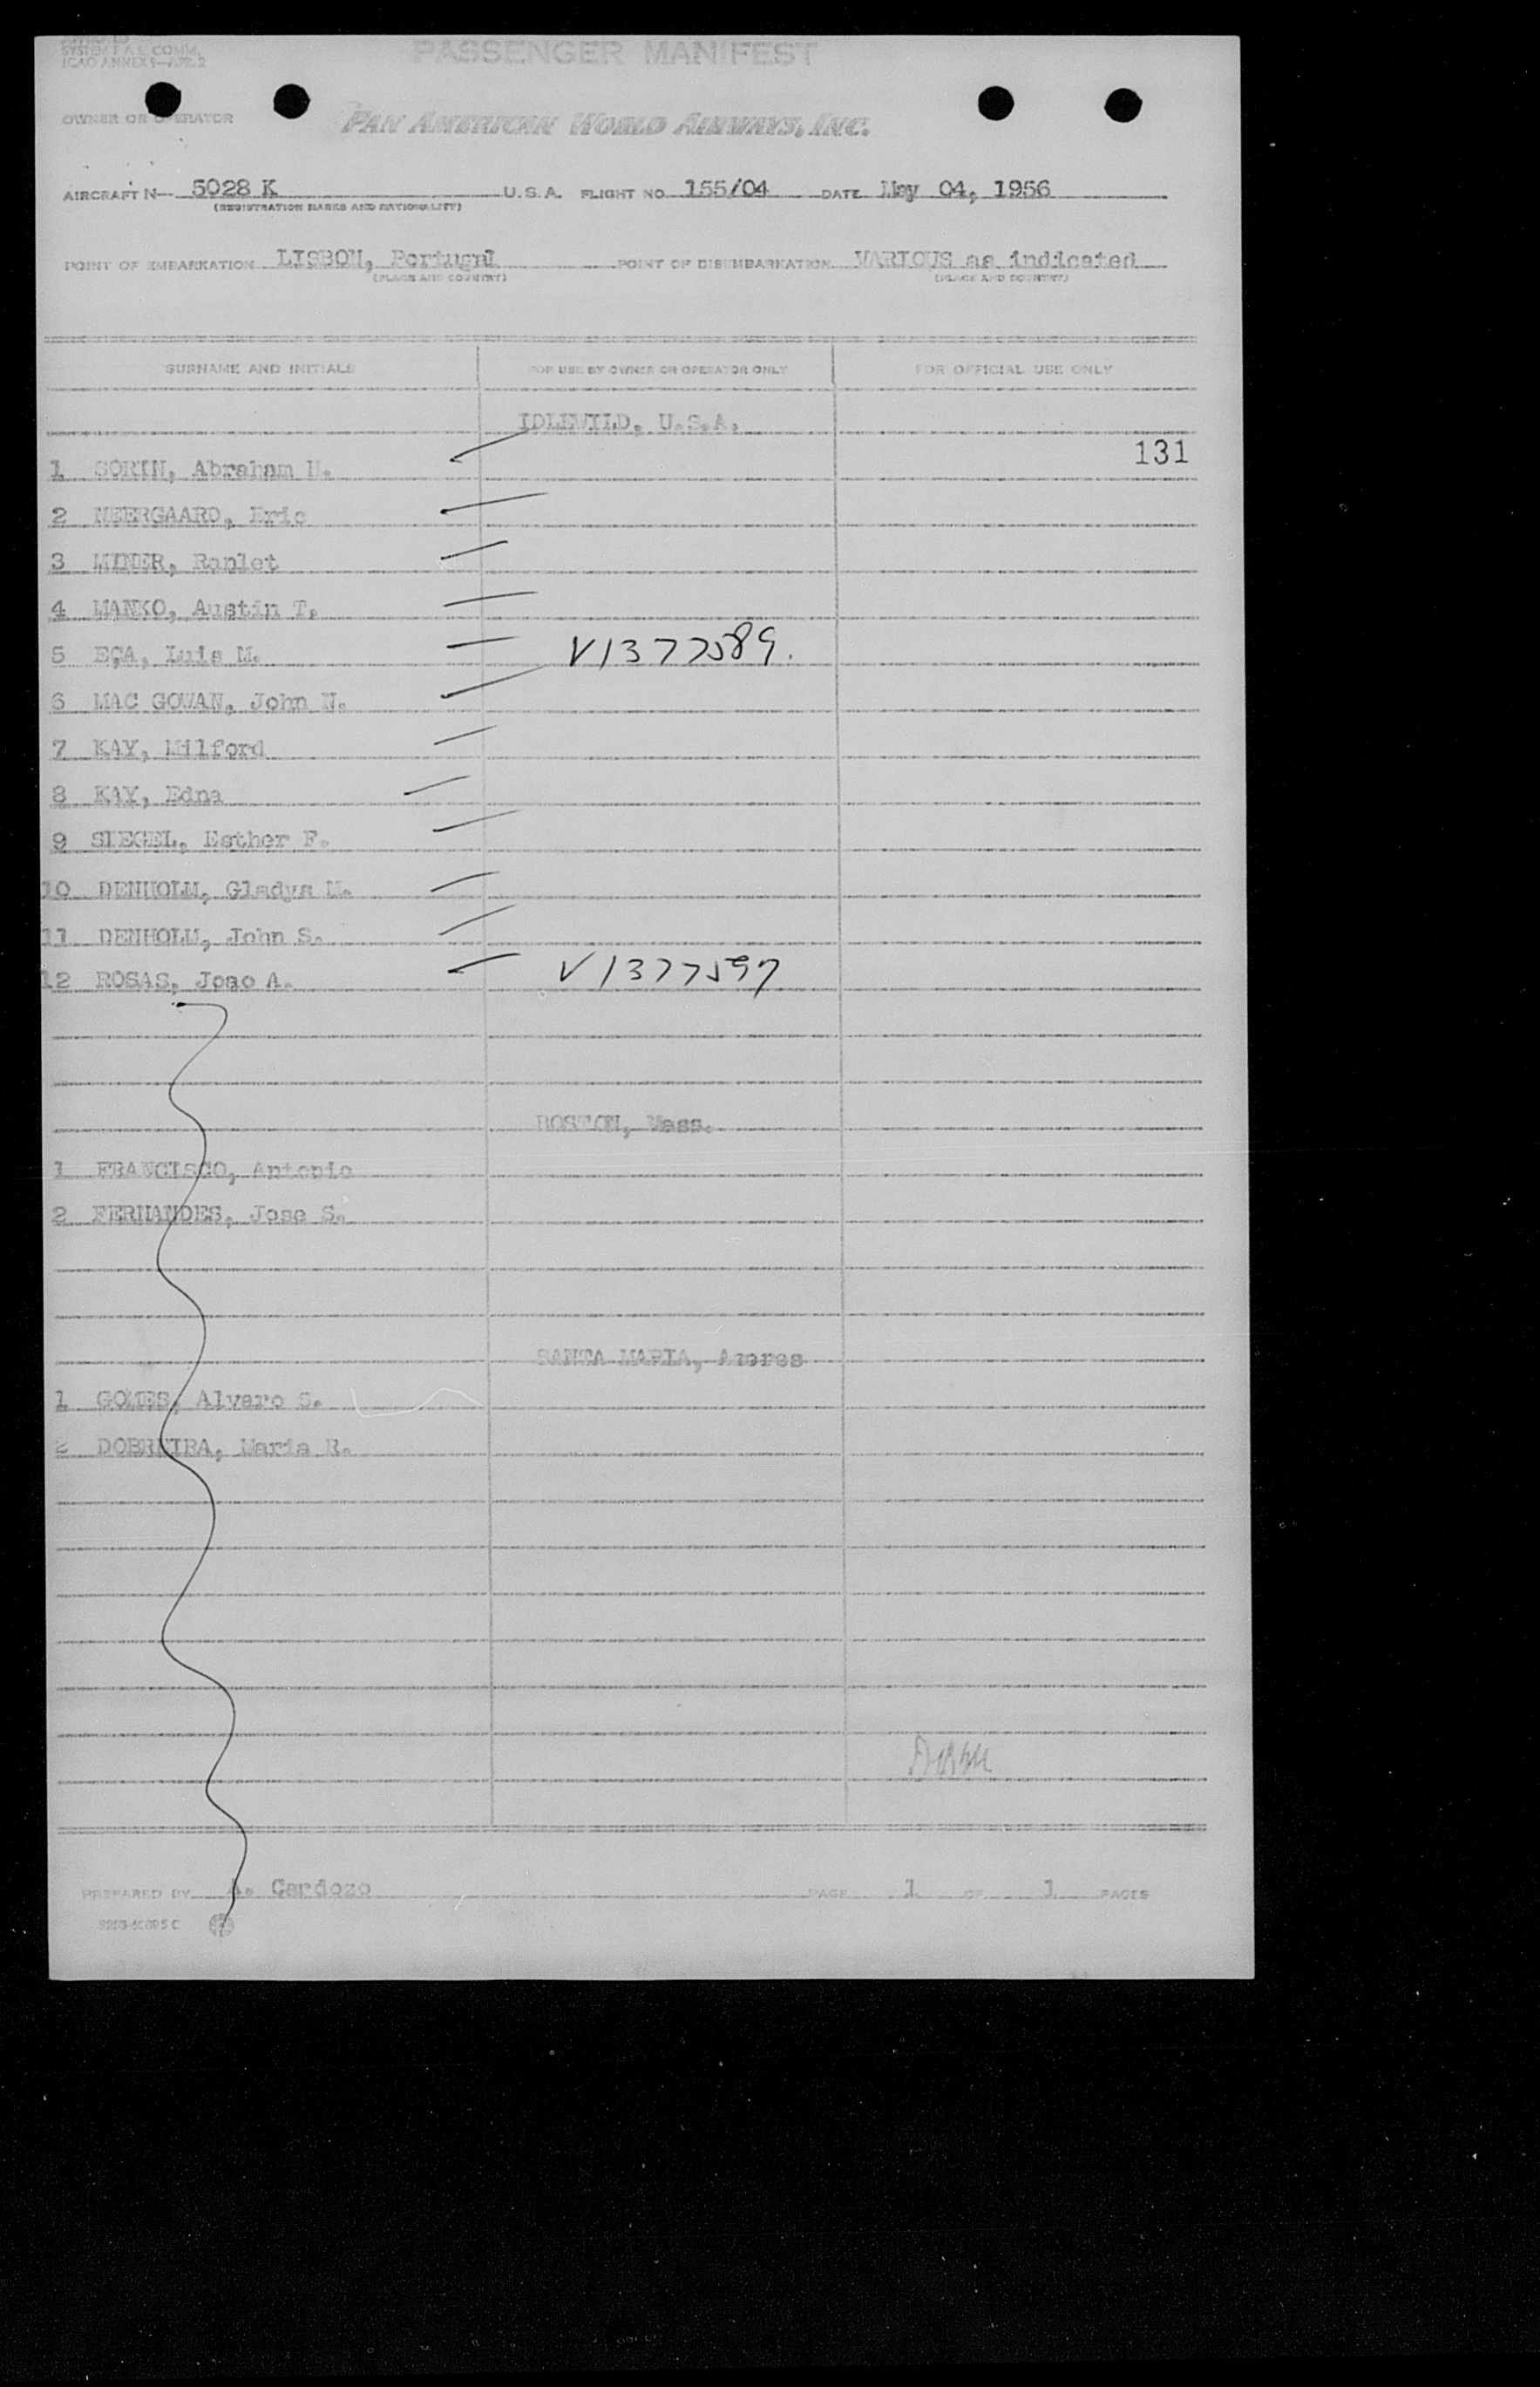 SYSTEM F.A.L. COMM.
ICAO ANNEX 9—APP. 2
PASSENGER MANIFEST
OWNER OR OPERATOR
PAN AMERICAN WORLD AIRWAYS, INC.
AIRCRAFT N— 5028 K U.S.A. FLIGHT NO. 155/04 DATE May 04, 1956
(REGISTRATION MARKS AND NATIONALITY)
POINT OF EMBARKATION LISBON, Portugal POINT OF DISEMBARKATION VARIOUS as indicated
(PLACE AND COUNTRY) (PLACE AND COUNTRY)
SURNAME AND INITIALS FOR USE BY OWNER OR OPERATOR ONLY FOR OFFICIAL USE ONLY
IDLEWILD, U.S.A.
131
1 SORIN, Abraham H.
2 NEERGAARD, Eric
3 MINER, Ranlet
4 MANKO, Austin T.
5 EÇA, Luis M. V1377589.
6 MAC GOWAN, John N.
7 KAY, Milford
8 KAY, Edna
9 SIEGEL, Esther F.
10 DENHOLM, Gladys M.
11 DENHOLM, John S.
12 ROSAS, Joao A. V1377597
BOSTON, Mass.
1 FRANCISCO, Antonio
2 FERNANDES, Jose S.
SANTA MARIA, Azores
1 GOMES, Alvaro S.
2 DOBREIRA, Maria R.
PREPARED BY A. Cardozo PAGE 1 OF 1 PAGES